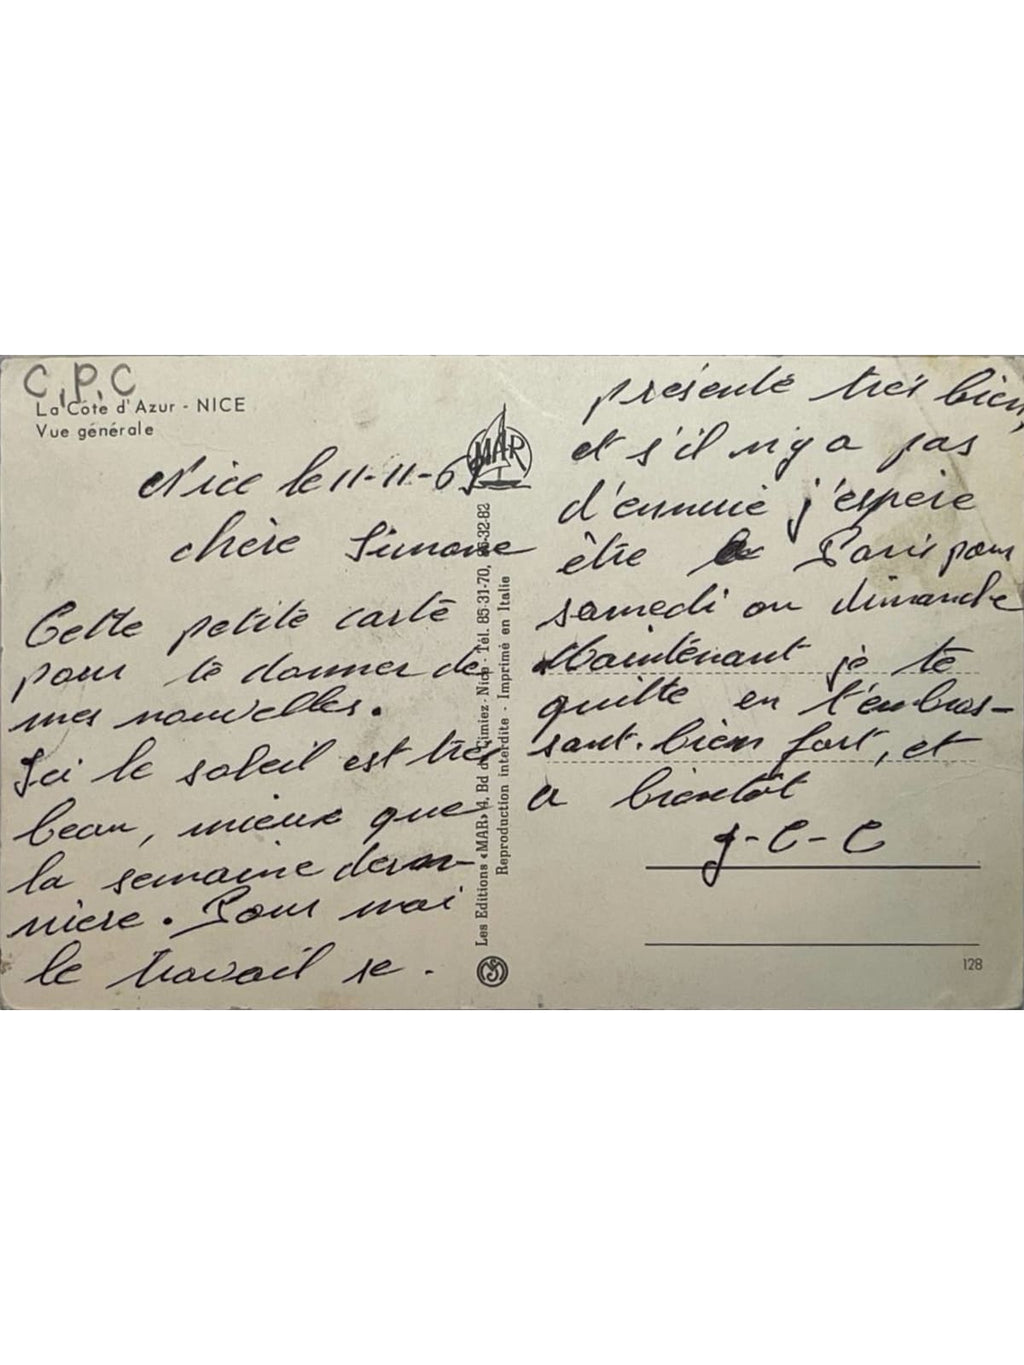 C.P.C
La Côte d'Azur - NICE
Vue générale
Nice le 11-11-69
chère Simone
Cette petite carte
pour te donner de
mes nouvelles.
Ici le soleil est très
beau, mieux que
la semaine der-
nière. Pour moi
le travail se.
MAR
Les Editions «MAR» 4, Bd de Cimiez - Nice - Tél. 85-31-70, 85-32-82
Reproduction interdite - Imprimé en Italie
présente très bien,
et s'il n'y a pas
d'ennuie j'espère
être a Paris pour
samedi ou dimanche
Maintenant je te
quitte en t'embras-
sant. bien fort, et
a bientôt
J-C-C
128